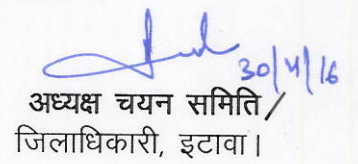 30/4/16
अध्यक्ष चयन समिति/
जिलाधिकारी, इटावा।